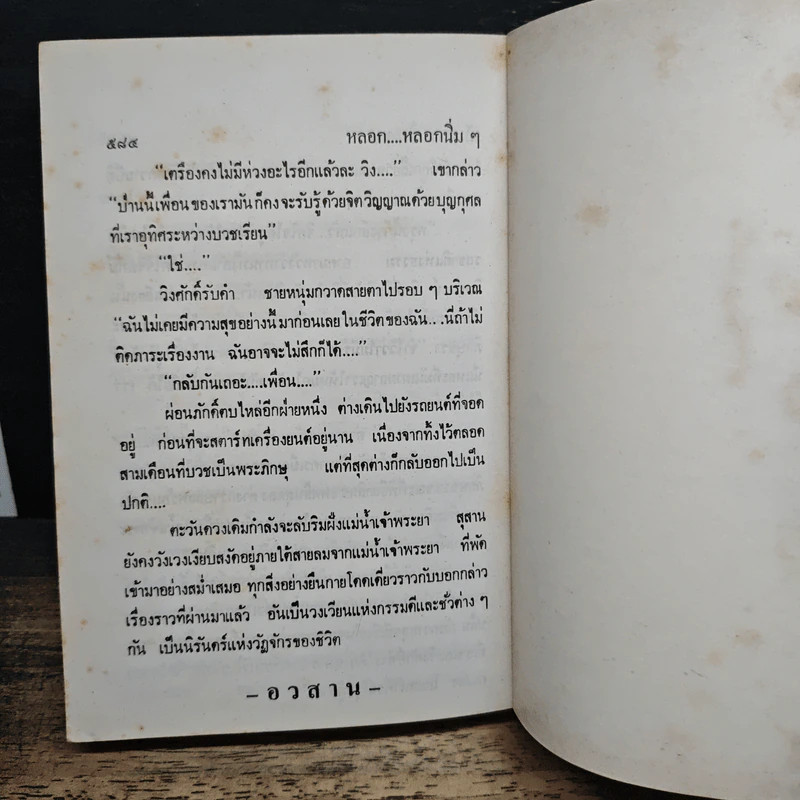 ๕๘๔ หลอก....หลอกนิ่ม ๆ
“เครืองคงไม่มีห่วงอะไรอีกแล้วละ วิง....” เขากล่าว
“ป่านนี้เพื่อนของเรามันก็คงจะรับรู้ด้วยจิตวิญญาณด้วยบุญกุศล
ที่เราอุทิศระหว่างบวชเรียน”
“ใช่....”
วิงศักดิ์รับคำ ชายหนุ่มกวาดสายตาไปรอบ ๆ บริเวณ
“ฉันไม่เคยมีความสุขอย่างนี้มาก่อนเลยในชีวิตของฉัน....นี่ถ้าไม่
ติดภาระเรื่องงาน ฉันอาจจะไม่สึกก็ได้....”
“กลับกันเถอะ....เพื่อน....”
ผ่อนภักดิ์ตบไหล่อีกฝ่ายหนึ่ง ต่างเดินไปยังรถยนต์ที่จอด
อยู่ ก่อนที่จะสตาร์ทเครื่องยนต์อยู่นาน เนื่องจากทิ้งไว้ตลอด
สามเดือนที่บวชเป็นพระภิกษุ แต่ที่สุดต่างก็กลับออกไปเป็น
ปกติ....
ตะวันดวงเดิมกำลังจะลับริมฝั่งแม่น้ำเจ้าพระยา สุสาน
ยังคงวังเวงเงียบสงัดอยู่ภายใต้สายลมจากแม่น้ำเจ้าพระยา ที่พัด
เข้ามาอย่างสม่ำเสมอ ทุกสิ่งอย่างยืนกายโดดเดี่ยวราวกับบอกกล่าว
เรื่องราวที่ผ่านมาแล้ว อันเป็นวงเวียนแห่งกรรมดีและชั่วต่าง ๆ
กัน เป็นนิรันดร์แห่งวัฏจักรของชีวิต
– อวสาน –